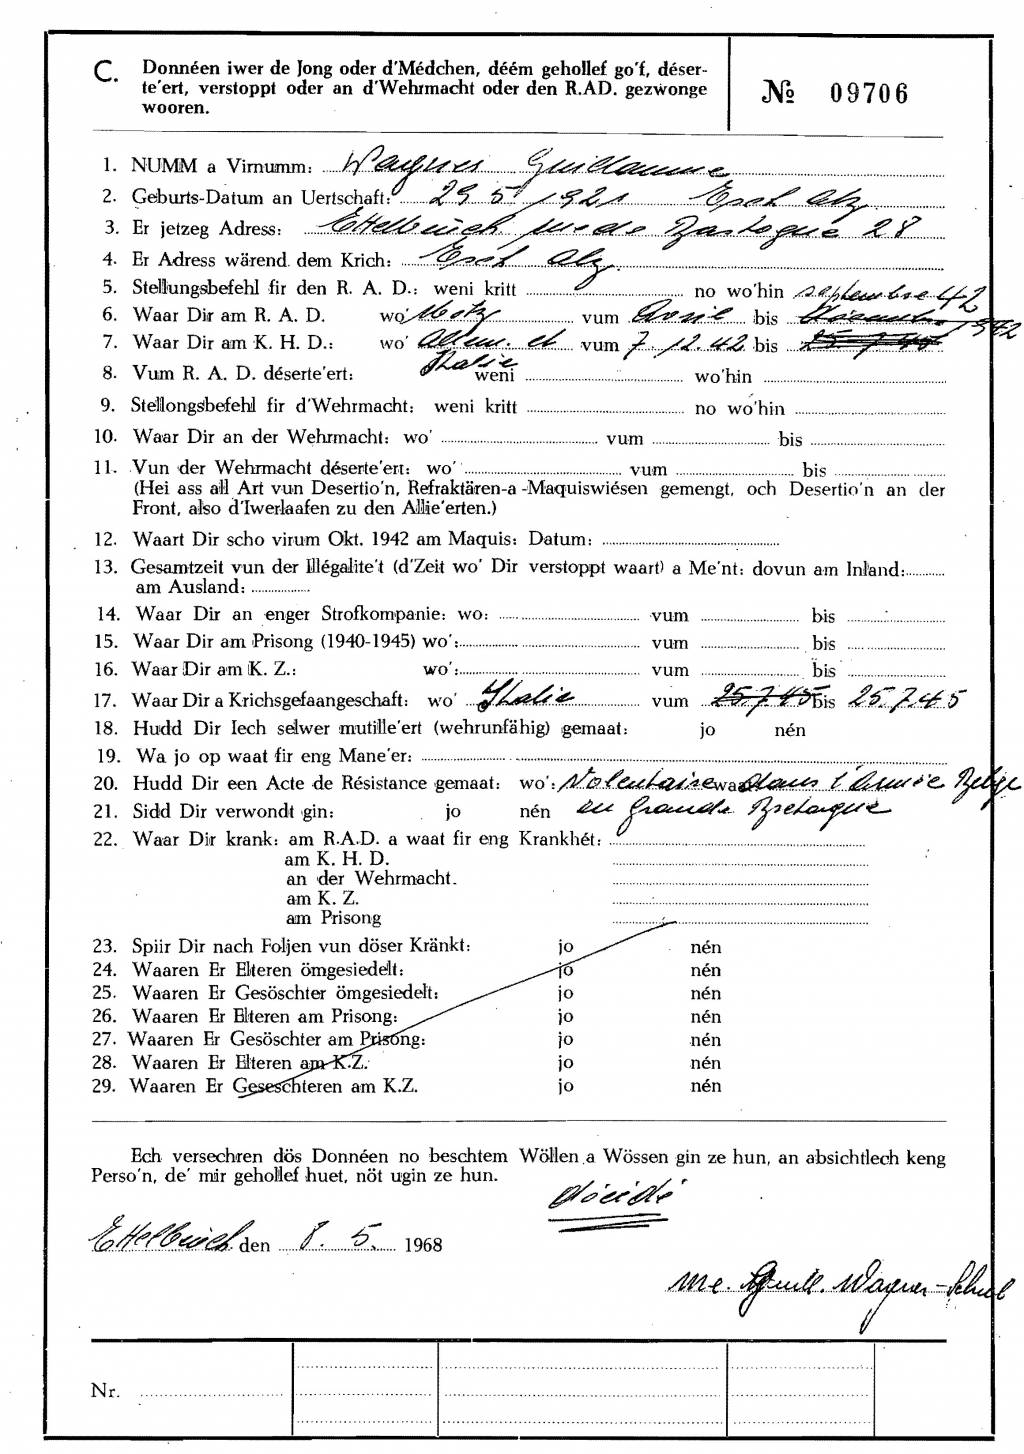 C. Donnéen iwer de Jong oder d'Médchen, déém gehollef go'f, déser-
te'ert, verstoppt oder an d'Wehrmacht oder den R.AD. gezwonge
wooren.
№ 09706
1. NUMM a Virnumm: Wagner Guillaume
2. Geburts-Datum an Uertschaft: 29 5 1921 Esch Alz.
3. Er jetzeg Adress: Ettelbrück rue de Bastogne 28
4. Er Adress wärend dem Krich: Esch Alz.
5. Stellungsbefehl fir den R. A. D.: weni kritt no wo'hin septembre 42
6. Waar Dir am R. A. D. wo' Metz vum Avril bis Décembre 1942
7. Waar Dir am K. H. D.: wo' Allem. et Italie vum 7. 12. 42 bis 25.7.45
8. Vum R. A. D. déserte'ert: weni wo'hin
9. Stellongsbefehl fir d'Wehrmacht: weni kritt no wo'hin
10. Waar Dir an der Wehrmacht: wo' vum bis
11. Vun der Wehrmacht déserte'ert: wo' vum bis
(Hei ass all Art vun Desertio'n, Refraktären-a-Maquiswiésen gemengt, och Desertio'n an der
Front, also d'Iwerlaafen zu den Allie'erten.)
12. Waart Dir scho virum Okt. 1942 am Maquis: Datum:
13. Gesamtzeit vun der Illégalite't (d'Zeit wo' Dir verstoppt waart) a Me'nt: dovun am Inland:
am Ausland:
14. Waar Dir an enger Strofkompanie: wo: vum bis
15. Waar Dir am Prisong (1940-1945) wo': vum bis
16. Waar Dir am K. Z.: wo': vum bis
17. Waar Dir a Krichsgefaangeschaft: wo' Italie vum 25.7.45 bis 25.7.45
18. Hudd Dir Iech selwer mutille'ert (wehrunfähig) gemaat: jo nén
19. Wa jo op waat fir eng Mane'er:
20. Hudd Dir een Acte de Résistance gemaat: wo': Volentaire waat dans l'Armée Belge
21. Sidd Dir verwondt gin: jo nén en Grande Bretagne
22. Waar Dir krank: am R.A.D. a waat fir eng Krankhét:
am K. H. D.
an der Wehrmacht.
am K. Z.
am Prisong
23. Spiir Dir nach Foljen vun döser Kränkt: jo nén
24. Waaren Er Elteren ömgesiedelt: jo nén
25. Waaren Er Gesöschter ömgesiedelt: jo nén
26. Waaren Er Elteren am Prisong: jo nén
27. Waaren Er Gesöschter am Prisong: jo nén
28. Waaren Er Elteren am K.Z. jo nén
29. Waaren Er Geseschteren am K.Z. jo nén
Ech versechren dös Donnéen no beschtem Wöllen a Wössen gin ze hun, an absichtlech keng
Perso'n, de' mir gehollef huet, nöt ugin ze hun.
décidé
Ettelbrück den 8. 5. 1968
me. Guill. Wagner-Schul
Nr.